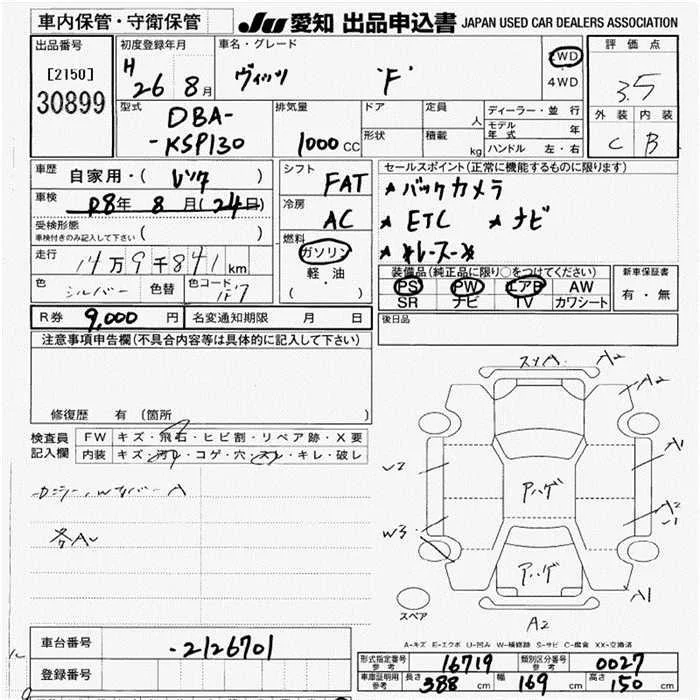 車内保管・守衛保管
JU 愛知 出品申込書 JAPAN USED CAR DEALERS ASSOCIATION
出品番号
[2150]
30899
初度登録年月
H 26 8月
車名・グレード
ヴィッツ "F"
2WD
4WD
評価点
3.5
外装 内装
C B
型式
DBA-
-KSP130
排気量
1000 CC
ドア
形状
定員 人
積載 kg
ディーラー・並行
モデル年式 年
ハンドル 左・右
車歴
自家用・( レンタ )
車検
R8年 8月(24日)
受検形態
車検付きのみ記入して下さい ( )
走行
14万9千841km
色
シルバー
色替
色コード
1F7
シフト
FAT
冷房
AC
燃料
ガソリン
軽・油
( )
セールスポイント(正常に機能するものに限ります)
★バックカメラ
★ETC ★ナビ
装備品(純正品に限り○をつけてください)
PS PW エアB AW
SR ナビ TV カワシート
新車保証書
有・無
R券 9,000円
名変通知期限 月 日
後日品
注意事項申告欄(不具合内容等は具体的に記入して下さい)
修復歴 有(箇所 )
検査員記入欄
FW キズ・飛石・ヒビ割・リペア跡・X要
内装 キズ・汚レ・コゲ・穴・スレ・キレ・破レ
A2
A2
A1
A2
U1
A1
A2
U2
W3
アハゲ
アハゲ
スペア
A-キズ E-エクボ U-凹み W-補修跡 S-サビ C-腐食 XX-交換済
車台番号
-2126701
登録番号
形式指定番号 参考 16719
類別区分番号 参考 0027
車庫証明用 参考 長さ 388 cm 幅 169 cm 高さ 150 cm